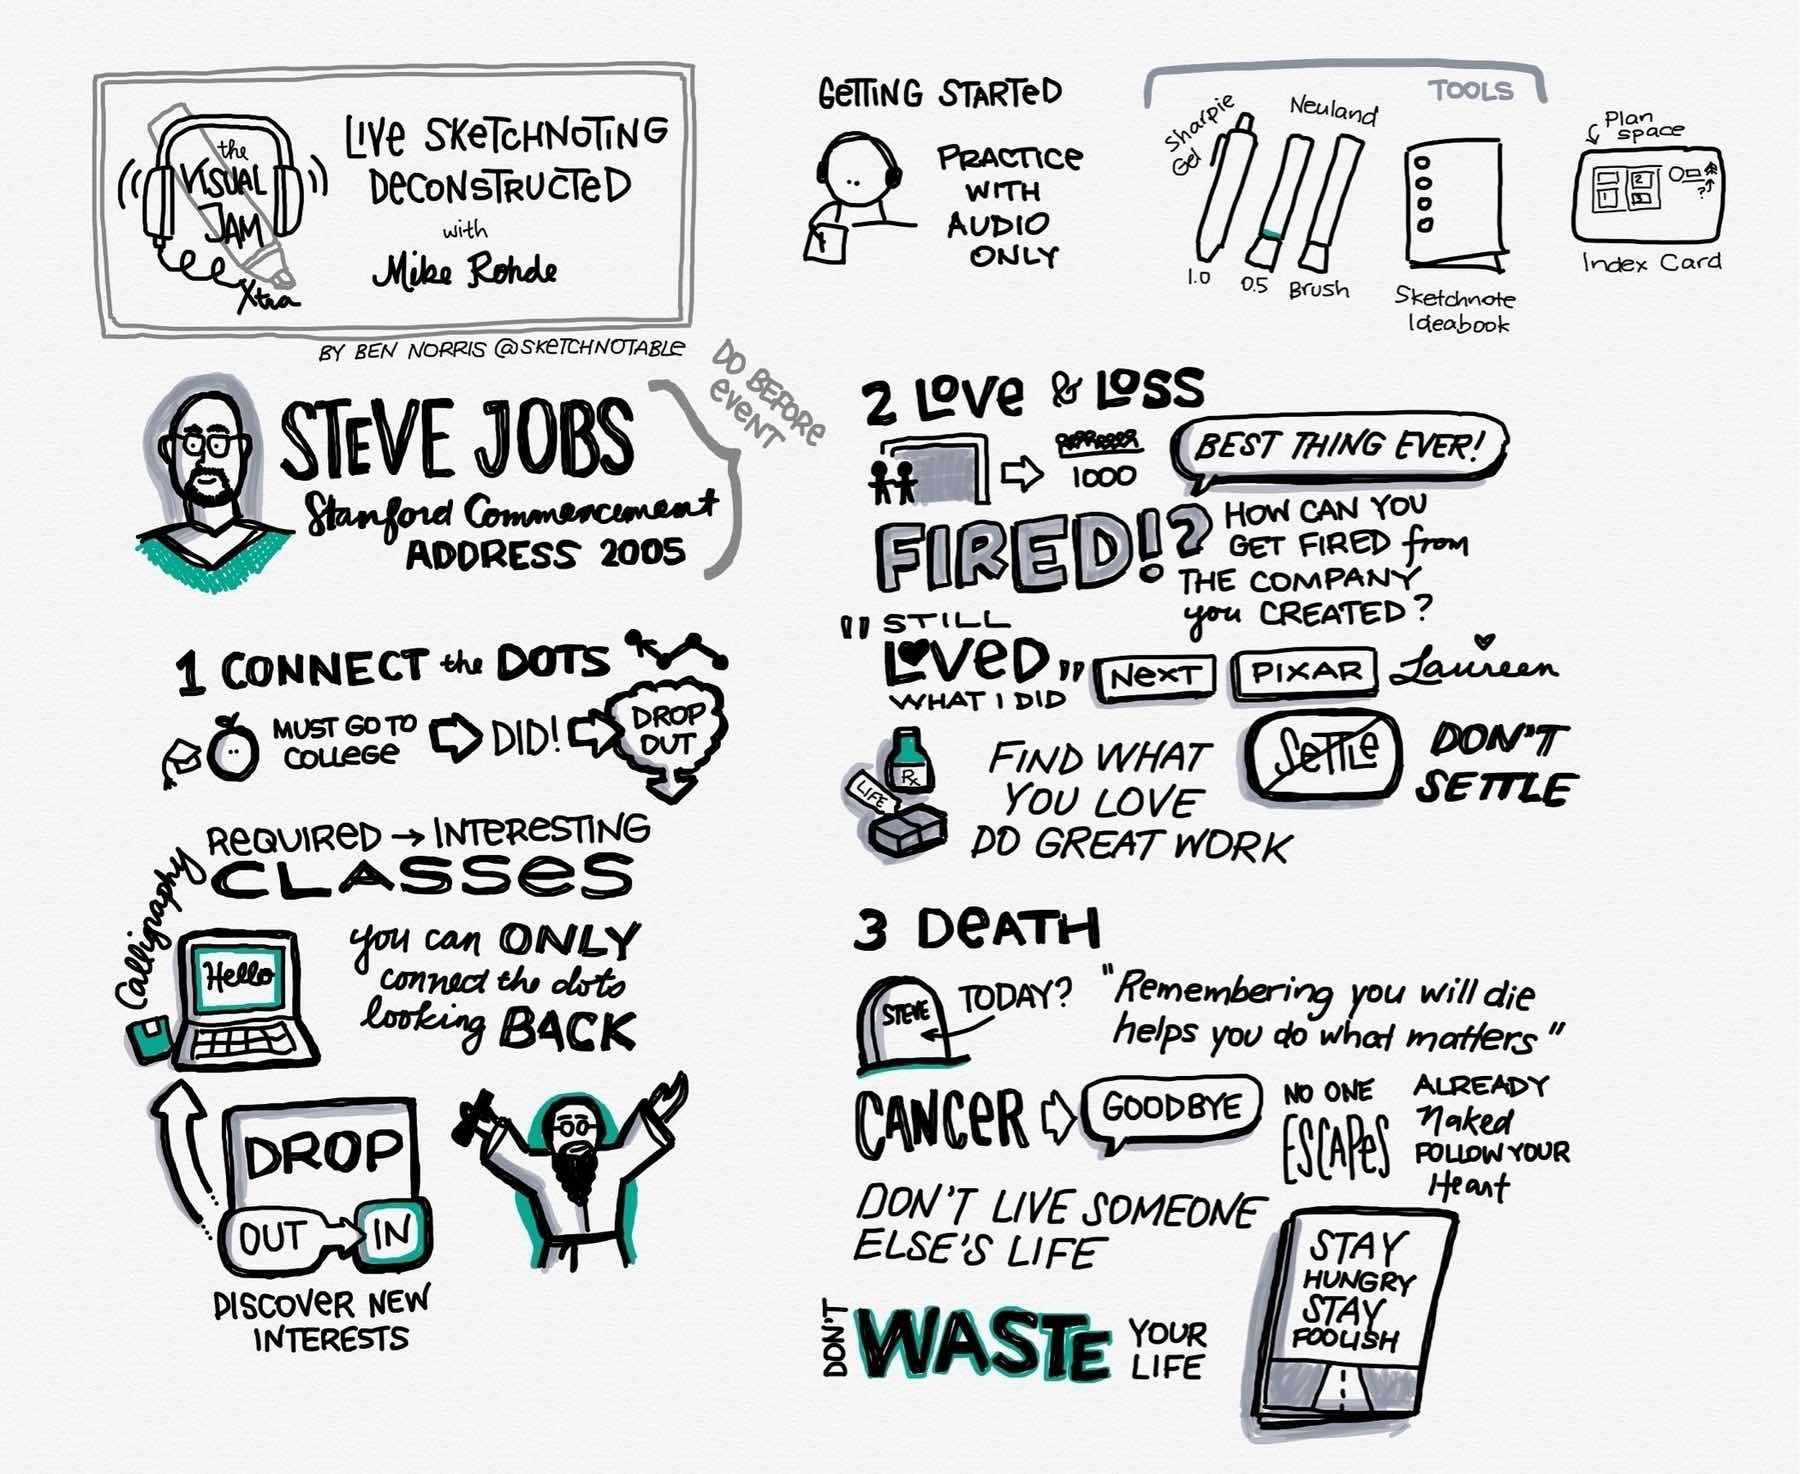 the
VISUAL
JAM
Xtra
LIVE SKETCHNOTING
DECONSTRUCTED
with
Mike Rohde
BY BEN NORRIS @SKETCHNOTABLE
GETTING STARTED
PRACTICE
WITH
AUDIO
ONLY
TOOLS
Sharpie
Gel
Neuland
1.0
0.5
Brush
Sketchnote
Ideabook
Plan
space
1
2
3
?
Index Card
STEVE JOBS
Stanford Commencement
ADDRESS 2005
DO BEFORE
EVENT
1 CONNECT the DOTS
MUST GO TO
COLLEGE
DID!
DROP
OUT
REQUIRED → INTERESTING
CLASSES
Calligraphy
Hello
you can ONLY
connect the dots
looking BACK
DROP
OUT
IN
DISCOVER NEW
INTERESTS
2 LOVE & LOSS
1000
BEST THING EVER!
FIRED!?
HOW CAN YOU
GET FIRED from
THE COMPANY
you CREATED?
"STILL
LOVED"
WHAT I DID
NEXT
PIXAR
Laureen
Rx
LIFE
FIND WHAT
YOU LOVE
DO GREAT WORK
SETTLE
DON'T
SETTLE
3 DEATH
STEVE
TODAY?
"Remembering you will die
helps you do what matters"
CANCER
GOODBYE
NO ONE
ESCAPES
ALREADY
Naked
FOLLOW YOUR
Heart
DON'T LIVE SOMEONE
ELSE'S LIFE
DON'T
WASTE
YOUR
LIFE
STAY
HUNGRY
STAY
FOOLISH